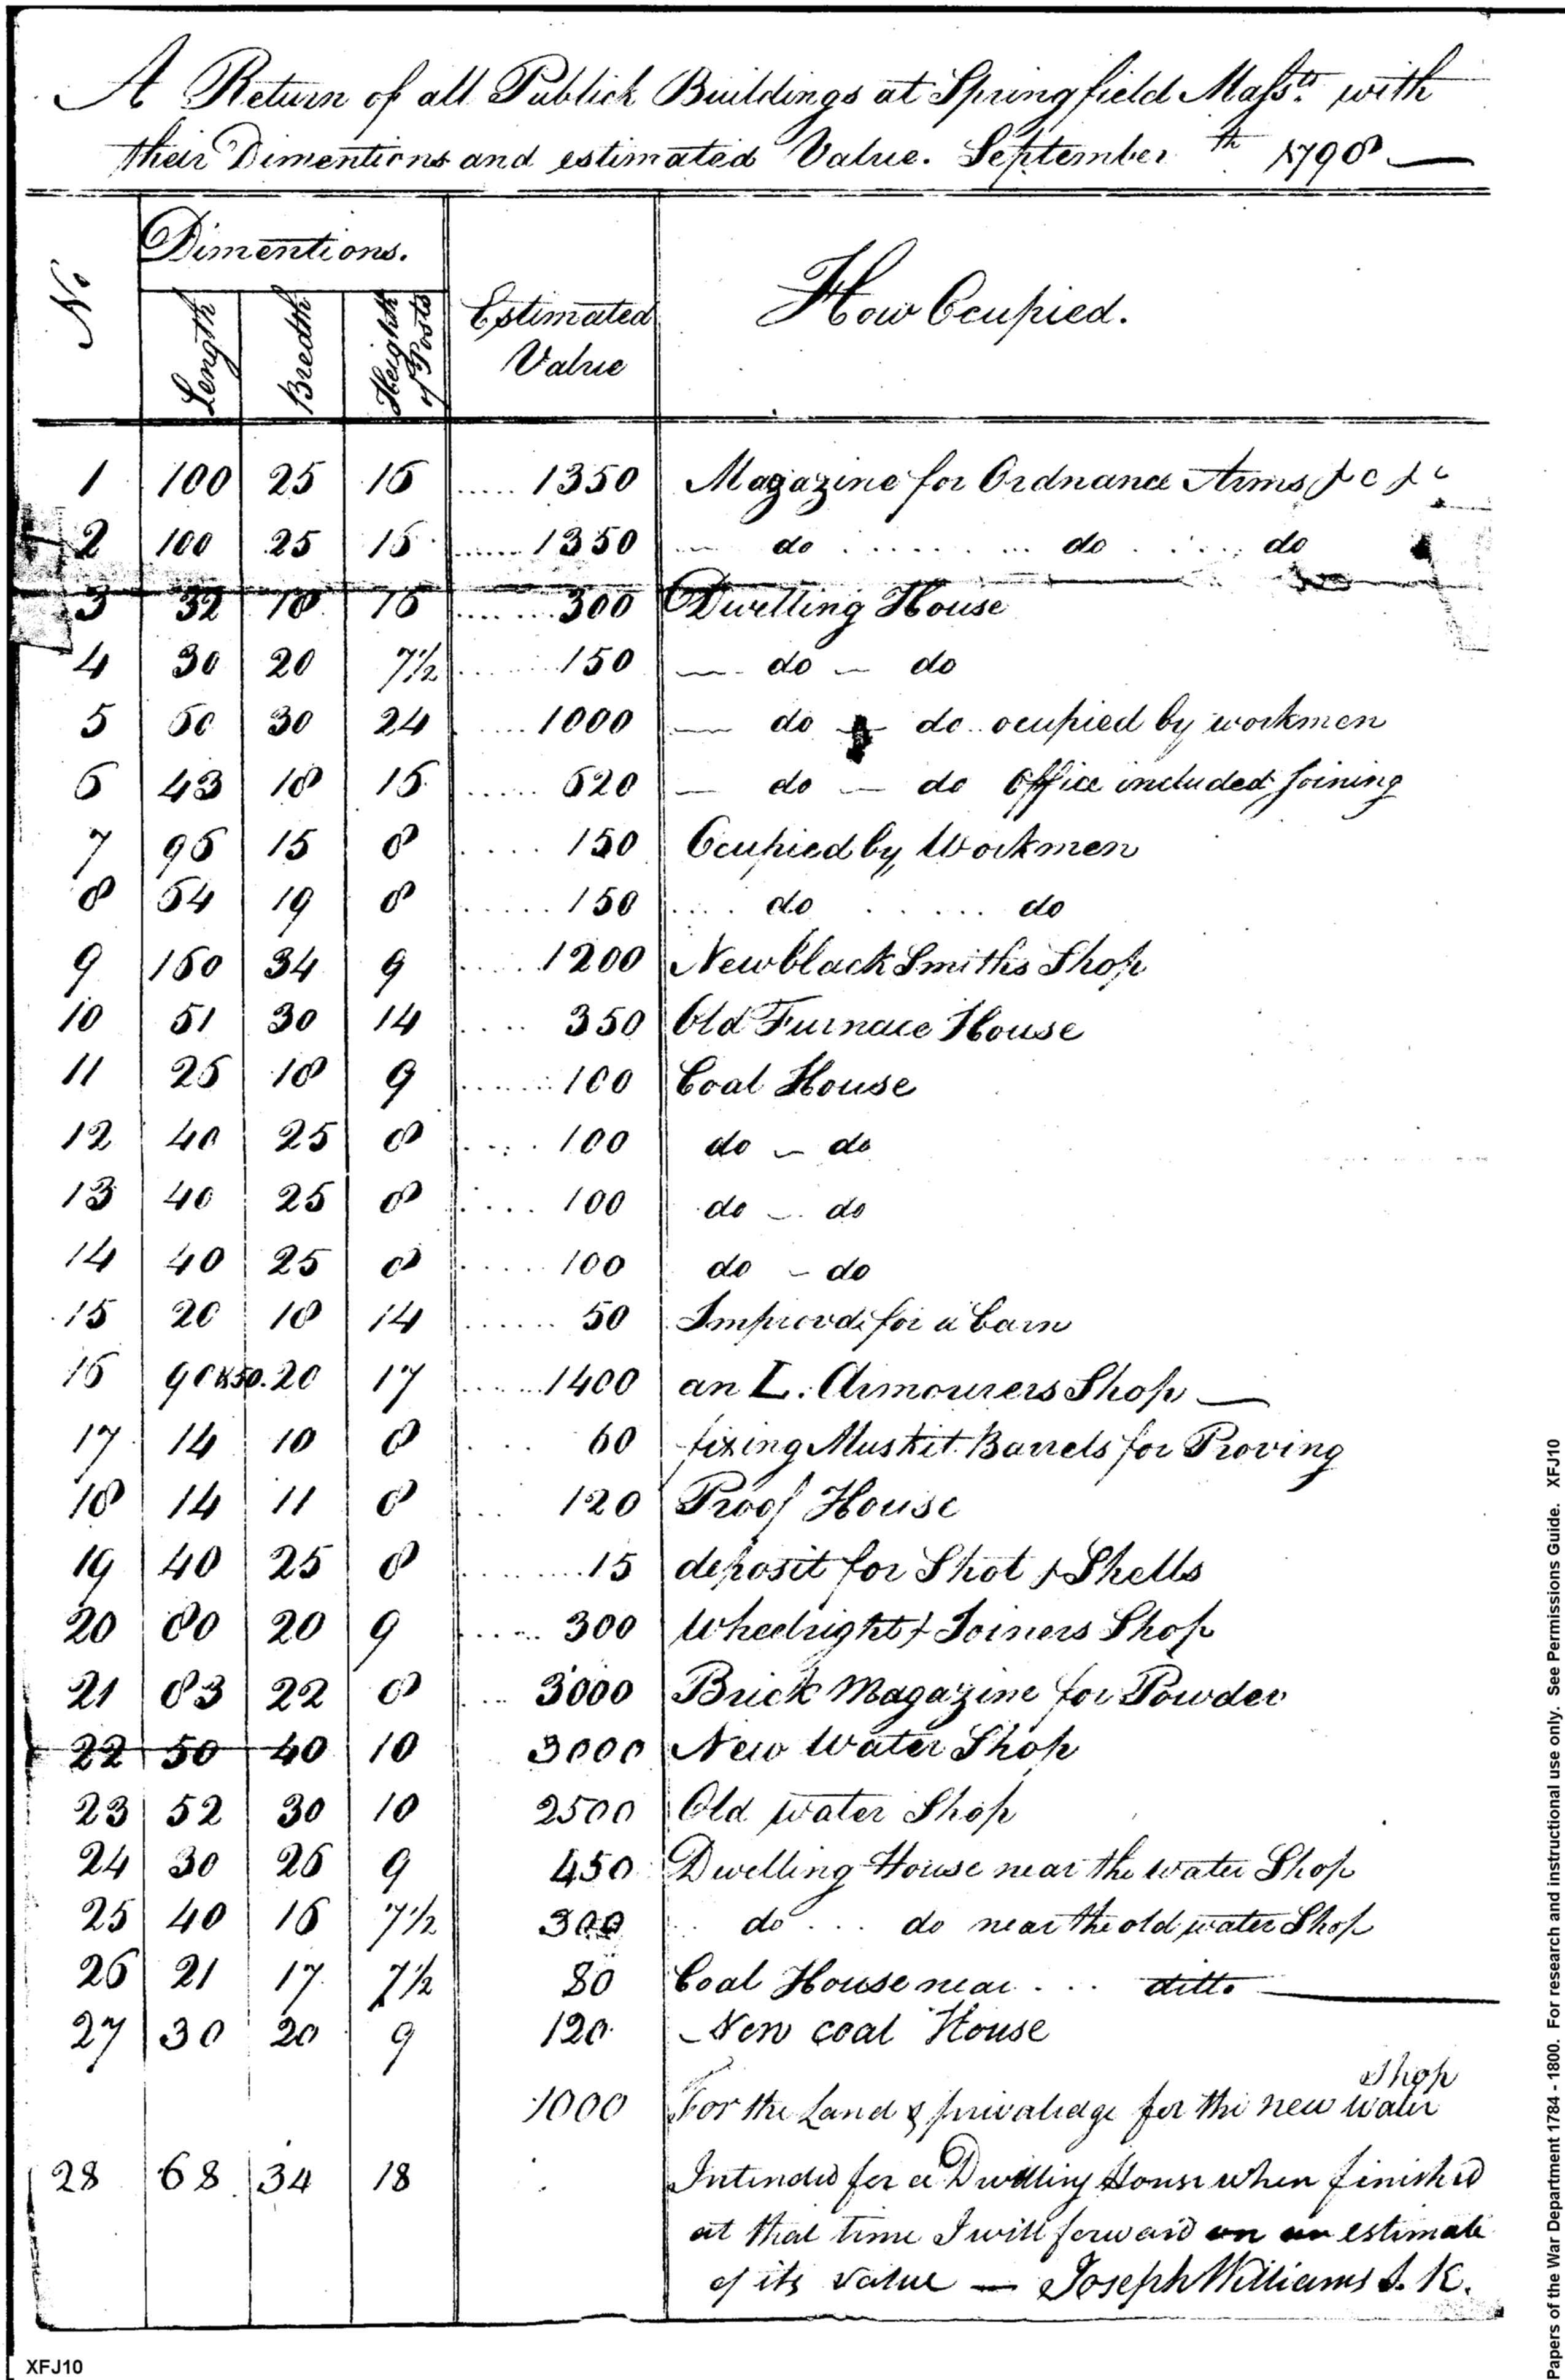 A Return of all Publick Buildings at Springfield Massts. with
their Dimentions and estimated Value. September th 1798
No Dimentions. Estimated Value How Ocupied.
Length Bredth Heighth of Posts
1 100 25 16 ..... 1350 Magazine for Ordnance Arms &c &c
2 100 25 16 ...... 1350 — do ........ do ..... do
3 32 18 16 ....... 300 Dwelling House
4 30 20 7½ ...... 150 — do — do
5 60 30 24 .... 1000 — do — do .. ocupied by workmen
6 43 18 16 ..... 620 — do — do Office included Joining
7 96 15 8 .... 150 Ocupied by Workmen
8 64 19 8 ..... 150 .... do ..... do
9 160 34 9 .... 1200 New black Smiths Shop
10 51 30 14 .... 350 Old Furnace House
11 26 18 9 ...... 100 Coal House
12 40 25 8 .... 100 do — do
13 40 25 8 .... 100 do — do
14 40 25 8 ..... 100 do — do
15 20 18 14 ...... 50 Improvd for a barn
16 90 & 50. 20 17 ..... 1400 an L. Armourers Shop —
17 14 10 8 ... 60 fixing Muskit Barrels for Proving
18 14 11 8 .. 120 Proof House
19 40 25 8 ........ 15 deposit for Shot & Shells
20 80 20 9 ..... 300 Wheelright & Joiners Shop
21 83 22 8 ... 3000 Brick Magazine for Powder
22 50 40 10 3000 New Water Shop
23 52 30 10 2500 Old water Shop
24 30 26 9 450 Dwelling House near the water Shop
25 40 16 7½ 300 .. do ... do near the old water Shop
26 21 17 7½ 80 Coal House near ... ditto
27 30 20 9 120 New coal House
1000 For the Land & privaledge for the new water Shop
28 68 34 18 Intended for a Dwelling House when finished
at that time I will forward an estimate
of its value — Joseph Williams S. K.
XFJ10
Papers of the War Department 1784 - 1800. For research and instructional use only. See Permissions Guide. XFJ10